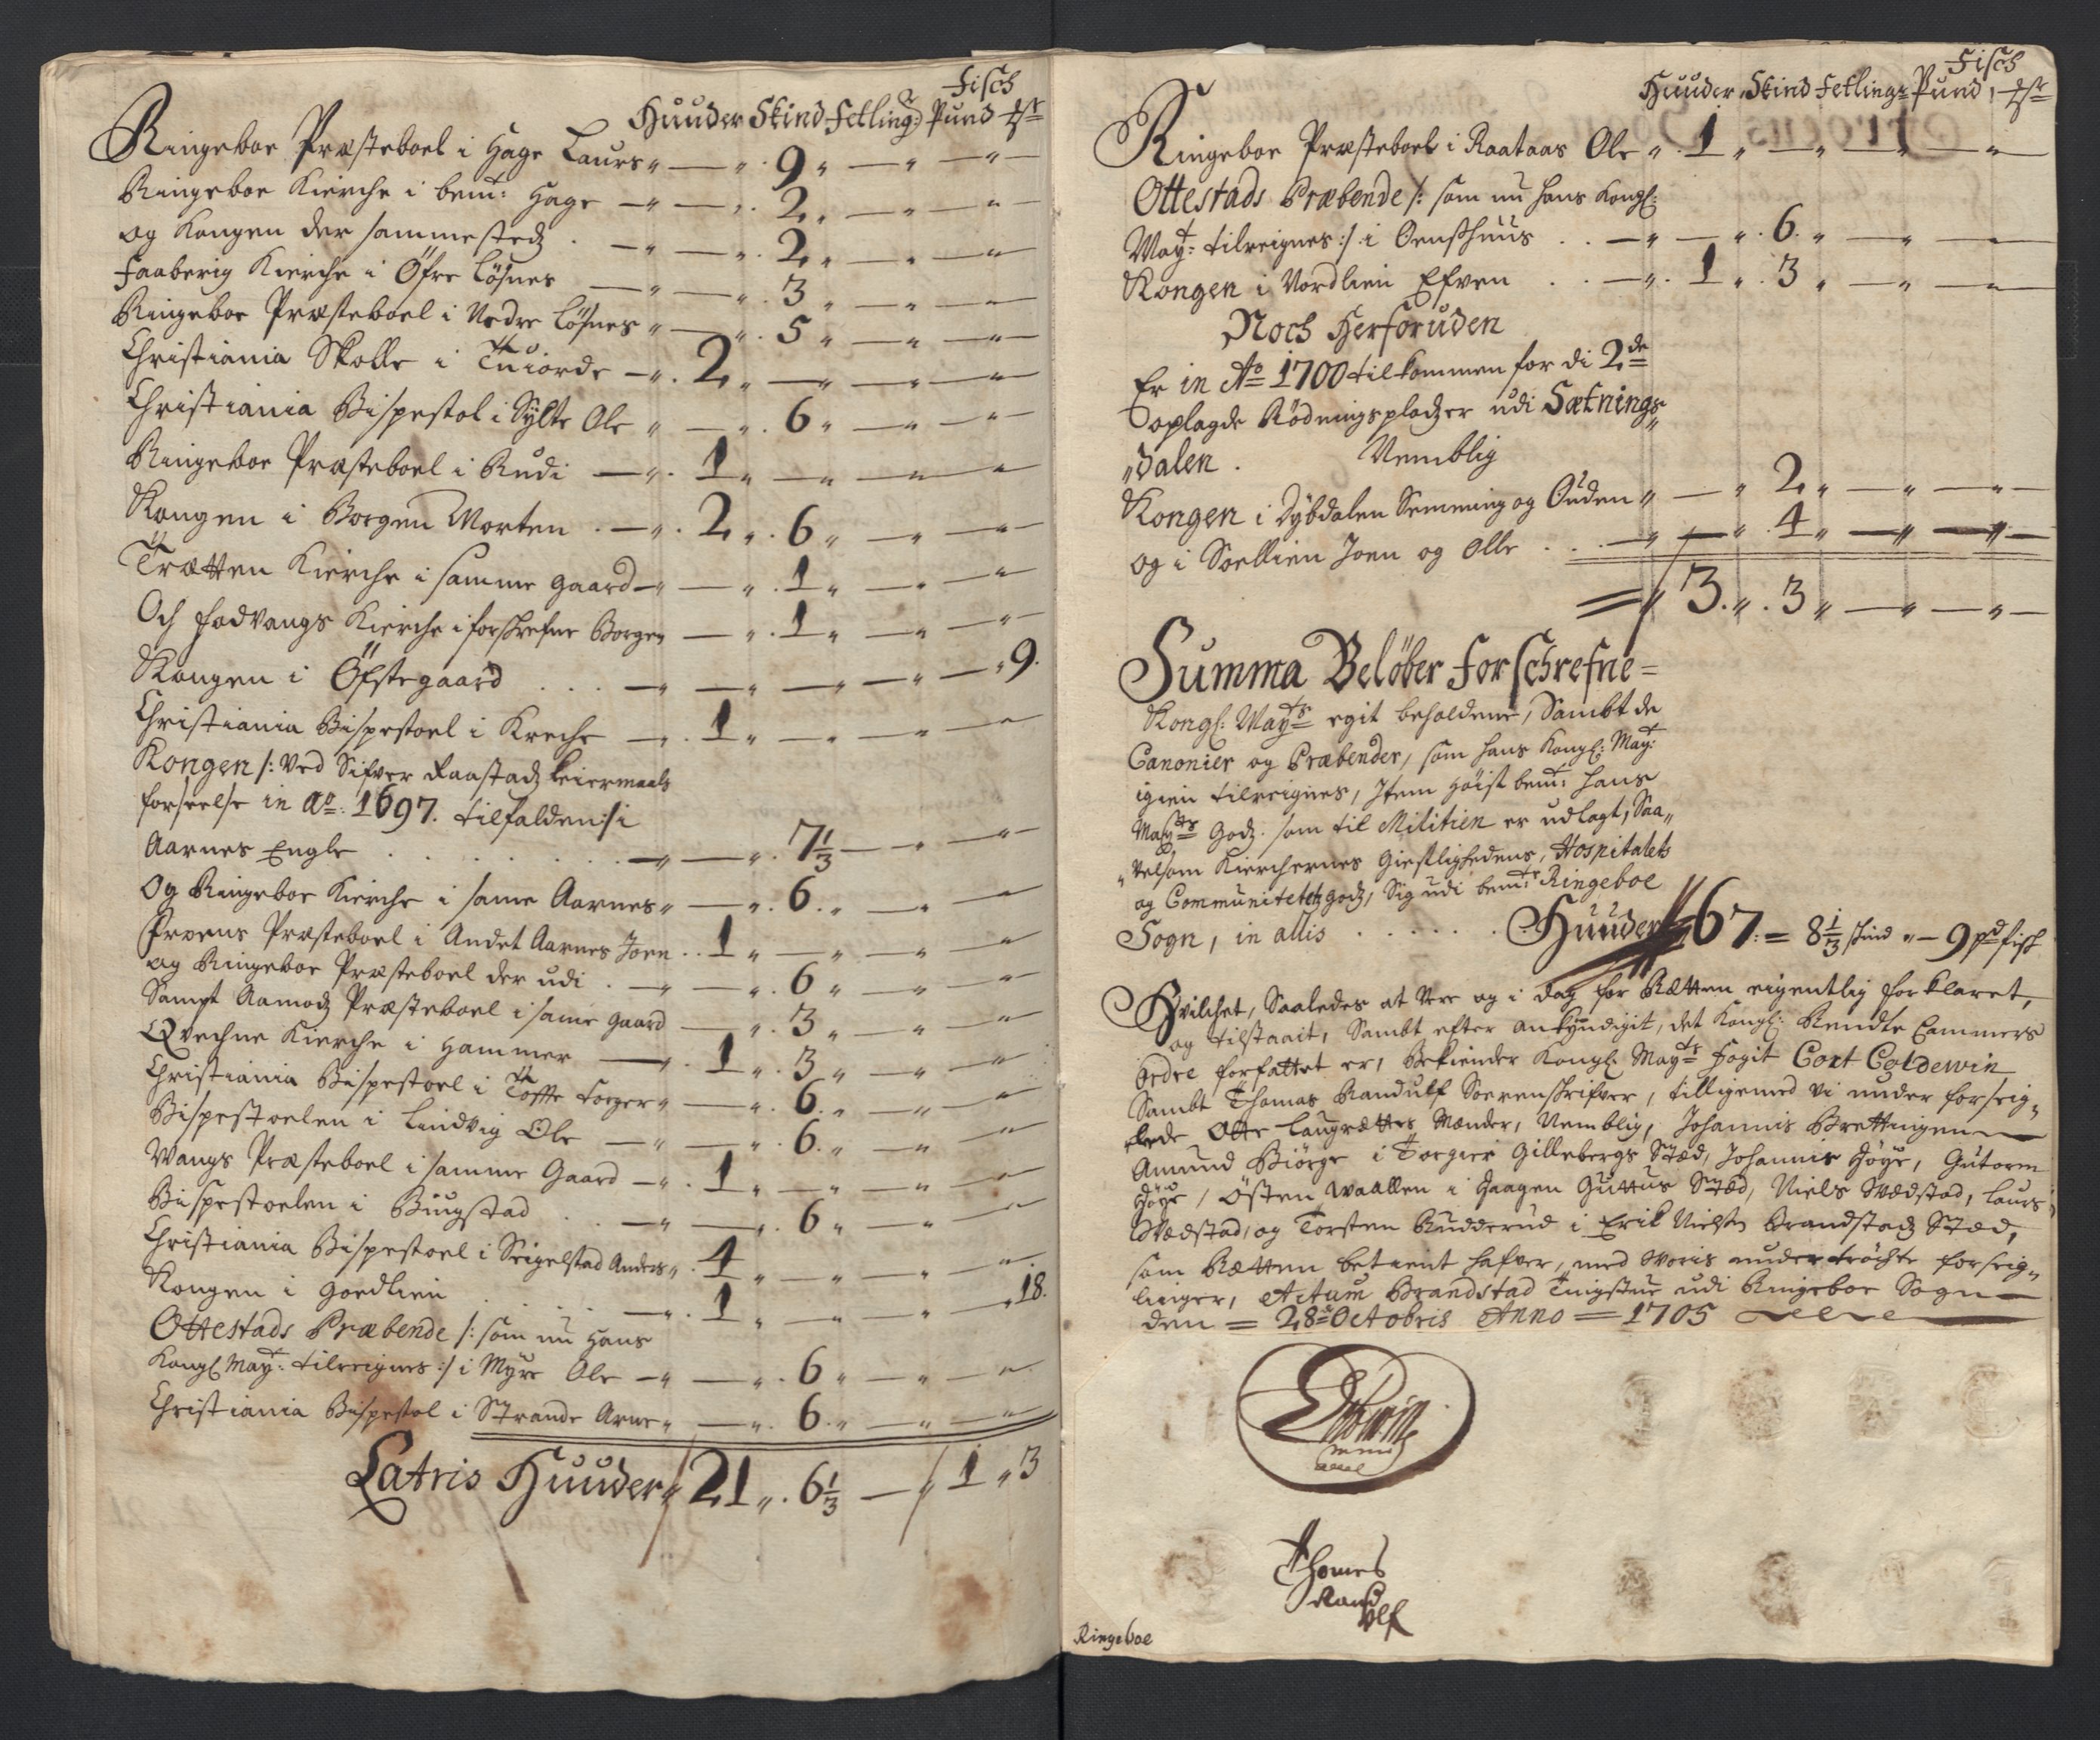 Fisch
Huuder Skind Fetling: Pund
Ringeboe Præsteboel i Hage Laurs „ — „ 9 „ — „ — „ —
Ringeboe Kierche i bemt: Hage — „ — „ 2 „ — „ — „ —
og Kongen der sammestedz . — „ — „ 2 „ — „ — „ —
Faaberig Kierche i Öfre Lösnes — „ — „ 3 „ — „ — „ —
Ringeboe Præsteboel i Nedre Lösnes „ — „ 5 „ — „ — „ —
Christiania Skolle i Tuiorde — „ 2 „ — „ — „ — „ —
Christiania Bispestol i Sylte Ole „ — „ 6 „ — „ — „
Ringeboe Præsteboel i Rudi — „ 1 „ — „ — „ — „
Kongen i Borgen Morten . — „ 2 „ 6 „ — „ — „ —
Trætten Kierche i samme gaard — „ — „ 1 „ — „ — „ —
Och Fodvangs Kierche i forskrefne Borgen — „ 1 „ — „ — „ —
Kongen i Öfstegaard . . . — „ — „ — „ — „ 9.
Christiania Bispestoel i Kreche — „ 1 „ — „ — „ — „ —
Kongen /: Ved Sifver Raastadz Leiermaals
forseelse in ao: 1697. tilfalden :/ i
Aarnes Engle . . . . . — „ — „ 7 1/3 — „ — „ —
Og Ringeboe Kierche i same Aarnes „ — „ 6 „ — „ — „
Proens Præsteboel i Andet Aarnes Joen . . 1 „ — „ — „ — „
og Ringeboe Præsteboel der udi . — „ — „ 6 „ — „ — „
Sampt Aamodz Præsteboel i same gaard — „ 3 „ — „ — „
Qvechne Kierche i Hammer — „ 1 „ 3 „ — „ — „
Christiania Bispestoel i Tofte Torger „ — „ 6 „ — „ — „
Bispestoelen i Lindvig Ole — „ — „ 6 „ — „ — „
Wangs Præsteboel i samme Gaard — „ 1 „ — „ — „ — „
Bispestoelen i Biugstad . . — „ — „ 6 „ — „ — „
Christiania Bispestoel i Seigelstad Anders „ 4 „ — „ — „ — „
Kongen i Goedlien . . . — „ 1 „ — „ — „ 18.
Ottestads Præbende /: som nu Hans
Kongl May:t tilreignes :/ i Myre Ole — „ — „ 6 „ — „ — „
Christiania Bispestol i Strande Arne „ — „ 6 „ — „ — „
Latris Huuder „ 21 „ 6 1/3 — „ 1 „ 3
Fisch
Huuder, Skind Fetling: Pund,
Ringeboe Præsteboel i Raataas Ole „ 1 „ — „ — „ — „ —
Ottestads Præbende /: som nu Hans Kongl:
May:t tilreignes :/ i Oensthuus . . — „ — „ 6 „ — „ —
Kongen i Nordlien Efven . . — „ 1 „ 3 „ — „ —
Noch Herforuden
Er in Ao 1700 tilkommen for di 2de
oplagde Rödningspladzer udi Sætnings
„dalen . Nemblig
Kongen i Dybdalen Semming og Ouden „ — „ 2 „ — „ — „ —
og i Soellien Joen og Olle . . — „ — „ 4 „ — „ — „ —
= „ 3 „ 3 „ — „ — „ —
Summa Belöber forschrefne =
Kongl: May:ts egit beholdene, Sambt de
Canonier og Præbender, som Hans Kongl: May:t
igien tilreignes, Item Höist bemt: Hans
May:ts Godz. som til Militien er udlagt, Saa„
„velsom Kierchernes Giestlighedens, Hospitalets
og Communitetetz godz, Sig udi bemte Ringeboe
Sogn, in allis . . . . . Huuder 67: = 8 1/3 skind „ — 9 pd fisk
Hvilchet, Saaledes at Vere og i dag for Rætten eigentlig forklaret,
og tilstaait, Sambt efter ankyndigit, det Kongl: Rendte Cammers
Ordre forfattet er, Bekiender Kongl May:ts Fogit Cort Coldewin
Sambt Thomas Randulf Soerenskrifver, tilligemed vi under forseig„
lede Otte Laugrættes Mænder, Nemblig, Johannis Brettingen —
Amund Biörge i Torgier Gillebergs Stæd, Johannis Höye, Gutorm
Höye, Östen Waallen i Haagen Guttus Stæd, Niels Vædstad, Laurs
Vædstad, og Torsten Rudderud i Erik Nielsen Brandstadz Stæd,
som Rætten betient hafver, med Voris undertröchte forseig„
linger, Actum Brandstad Tingstue udi Ringeboe Sogn —
den = 28de Octobris Anno = 1705
Thomes
Rand
Ulf
Ringeboe